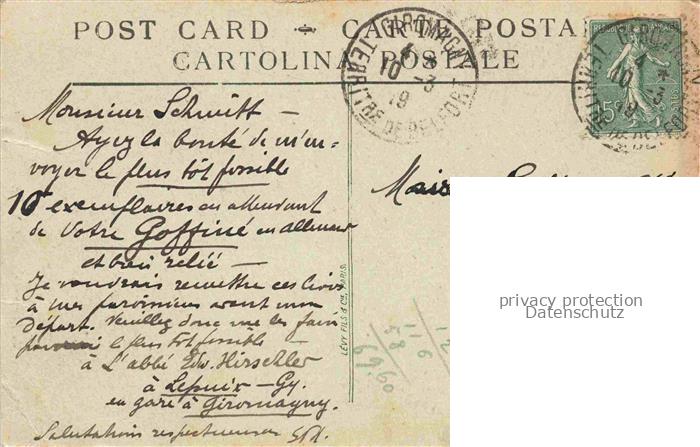 POST CARD — CARTE POSTALE
CARTOLINA POSTALE
GIROMAGNY
4 *
10 -3
19
TERRIT RE DE BELFORT
15
Monsieur Schmitt —
Ayez la bonté de m'en-
voyer le plus tôt possible
10 exemplaires en attendant
de votre Goffiné en allemand
et bien relié —
Je voudrais remettre ces livres
à mes paroissiens avant mon
Départ. Veuillez donc me les faire
le plus tôt possible —
à L'abbé Edw. Hirschler
à Lepuix-Gy.
en gare à Giromagny.
Salutations respectueuses
LÉVY FILS & Cie, PARIS
privacy protection
Datenschutz